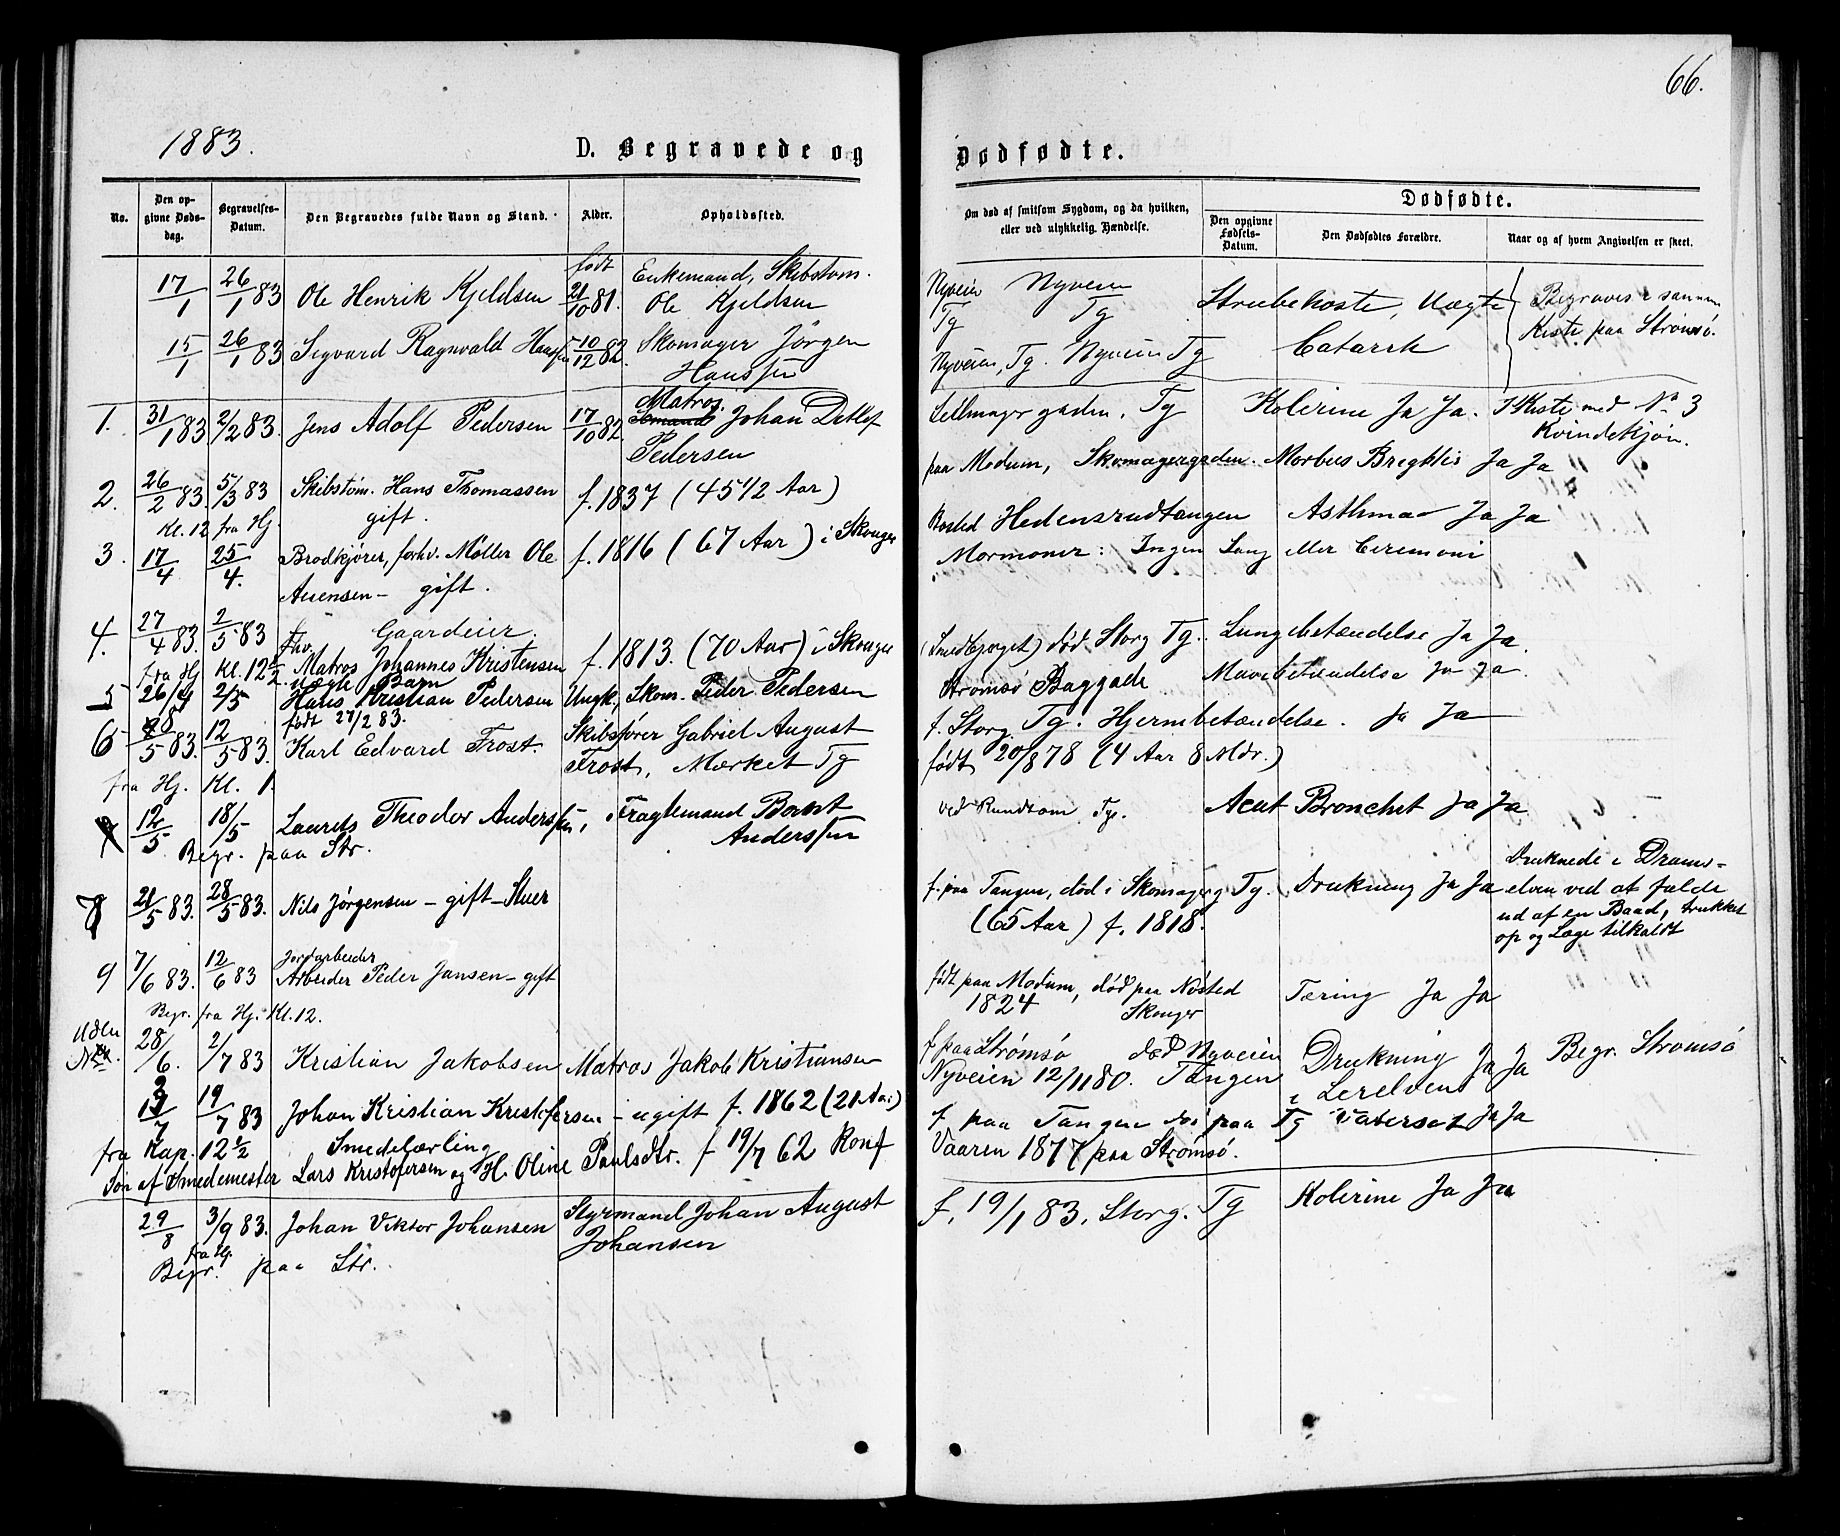 66.
1883.
D. Begravede og
Dødfødte.
No.
Den opgivne Dødsdag.
Begravelses-Datum.
Den Begravedes fulde Navn og Stand.
Alder.
Opholdssted.
Om død af smitsom Sygdom, og da hvilken, eller ved ulykkelig Hændelse.
Dødfødte.
Den opgivne Fødsels-Datum.
Den Dødfødtes Forældre.
Naar og af hvem Angivelsen er skeet.
17/1 26/1 83 Ole Henrik Kjeldsen født 21/10 81. Enkemand, Skibstøm.
Ole Kjeldsen
Nyveien Tg Nyveien Tg Strubehoste, Uægte
Begraves i samme
Kiste paa Strømsø.
15/1 26/1 83 Segvard Ragnvald Hanssen 10/12 82 Skomager Jørgen
Hanssen
Nyveien, Tg. Nyveien Tg Catarrh
1. 31/1 83 2/2 83. Jens Adolf Pedersen 17/10 82 Matros Johan Detlef
Pedersen
Sellmagergaden. Tg Kolerine Ja Ja. I Kiste med No 3
Kvindekjøn.
2. 26/2 83. 5/3 83 Skibstøm. Hans Thomassen f. 1837 (45 1/2 Aar)
Kl. 12 fra Hj. gift.
paa Modum, Skomagergaden. Morbus Brigktis Ja Ja
3. 17/4 25/4. Brodkjører, forhv. Møller Ole f. 1816 (67 Aar) i Skouger
Auensen - gift.
Bosted Hedensrudtangen Asthma Ja Ja
Mormoner: Ingen Sang eller Ceremoni
4. 27/4 83. 2/5 83 Fhv. Gaardeier
fra Hj Kl. 12 1/2. Matros Johannes Kristensen f. 1813. (70 Aar) i Skouger
(Smedbjerget) død Storg Tg. Lungebetændelse Ja Ja.
uægte Barn
5 26/4 2/5 Hans Kristian Pedersen Ungk, Skom. Peder Pedersen
født 27/2 83.
Strømsø Baggade Mavebetændelse Ja Ja.
6 8/5 83. 12/5 83. Karl Edvard Frost. Skibsfører Gabriel August
Frost, Mærket Tg
fra Hj. Kl. 1.
f. Storg. Tg. Hjernebetændelse. Ja Ja
født 20/8 78 (4 Aar 8 Mdr.)
7 12/5 18/5 Laurits Theodor Anderssen, Fragtemand Bernt
Anderssen
Begr. paa Str.
ved Rundtom Tg. Acut Bronchit Ja Ja
8 21/5 83. 28/5 83. Nils Jørgensen - gift - Stuer
f. paa Tangen, død i Skomagerg Tg. Drukning Ja Ja
(65 Aar) f. 1818.
Druknede i Drams-
elven ved at falde
ud af en Baad, trukket
op og Læge tilkaldt
Jordarbeider
9 7/6 83. 12/6 83 Arbeider Peder Jansen - gift
Begr. fra Hj. Kl. 12.
født paa Modum, død paa Nøsted Tæring Ja Ja
1824 Skouger
Uden
No. 28/6. 2/7 83 Kristian Jakobsen Matros Jakob Kristiansen
f paa Strømsø død Nyveien Drukning Ja Ja Begr. Strømsø
Nyveien 12/11 80. Tangen i Lerelven
19/7 83 Johan Kristian Kristofersen - ugift f. 1862 (21 Aar)
fra Kap. 12 1/2 Smedelærling
Søn af Smedemester Lars Kristofersen og H. Oline Paulsdtr. f 19/7 62 Konf
f paa Tangen død paa Tg Ja Ja
Vaaren 1877 paa Strømsø.
29/8 3/9 83. Johan Viktor Johansen Styrmand Johan August
Johansen
fra Hj.
Begr. paa Str.
f. 19/1 83. Storg. Tg Kolerine Ja Ja